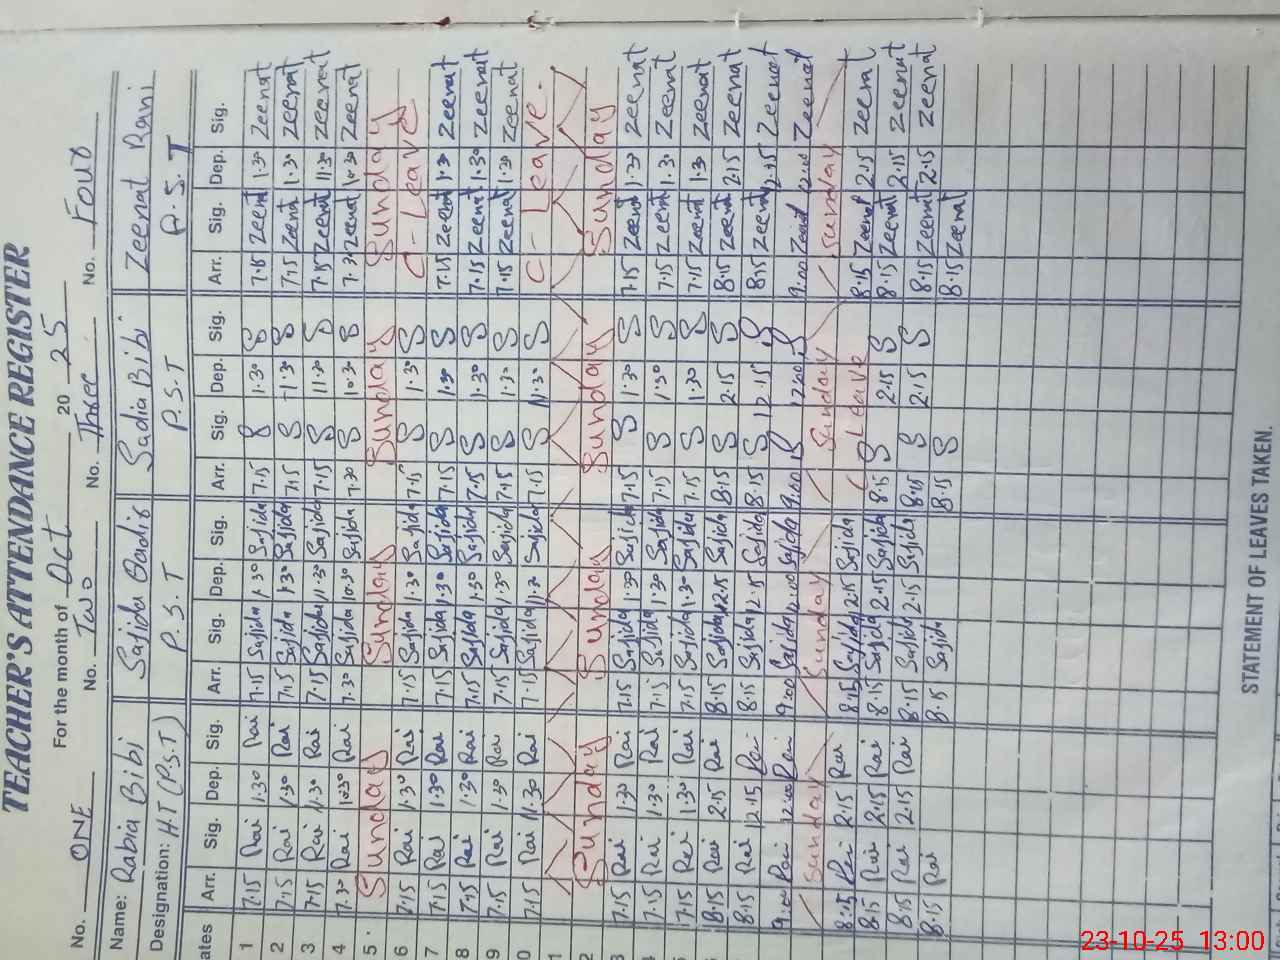 TEACHER'S ATTENDANCE REGISTER
For the month of Oct 2025
No. ONE No. Two No. Three No. Four
Name: Rabia Bibi Sajida Qadir Sadia Bibi Zeenat Rani
Designation: H.T (P.S.T) P.S.T P.S.T P.S.T
ates Arr. Sig. Dep. Sig. Arr. Sig. Dep. Sig. Arr. Sig. Dep. Sig. Arr. Sig. Dep. Sig.
1 7.15 Rai 1.30 Rai 7.15 Sajida 1.30 Sajida 7.15 S 1.30 S 7.15 Zeenat 1.30 Zeenat
2 7.15 Rai 1.30 Rai 7.15 Sajida 1.30 Sajida 7.15 S 1.30 S 7.15 Zeenat 1.30 Zeenat
3 7.15 Rai 11.30 Rai 7.15 Sajida 11.30 Sajida 7.15 S 11.30 S 7.15 Zeenat 11.30 Zeenat
4 7.30 Rai 10.30 Rai 7.30 Sajida 10.30 Sajida 7.30 S 10.30 S 7.30 Zeenat 10.30 Zeenat
5 Sunday Sunday Sunday Sunday
6 7.15 Rai 1.30 Rai 7.15 Sajida 1.30 Sajida 7.15 S 1.30 S C - Leave
7 7.15 Rai 1.30 Rai 7.15 Sajida 1.30 Sajida 7.15 S 1.30 S 7.15 Zeenat 1.30 Zeenat
8 7.15 Rai 1.30 Rai 7.15 Sajida 1.30 Sajida 7.15 S 1.30 S 7.15 Zeenat 1.30 Zeenat
9 7.15 Rai 1.30 Rai 7.15 Sajida 1.30 Sajida 7.15 S 1.30 S 7.15 Zeenat 1.30 Zeenat
0 7.15 Rai 11.30 Rai 7.15 Sajida 11.30 Sajida 7.15 S 11.30 S C - Leave.
1
2 Sunday Sunday Sunday Sunday
3 7.15 Rai 1.30 Rai 7.15 Sajida 1.30 Sajida 7.15 S 1.30 S 7.15 Zeenat 1.30 Zeenat
4 7.15 Rai 1.30 Rai 7.15 Sajida 1.30 Sajida 7.15 S 1.30 S 7.15 Zeenat 1.30 Zeenat
7.15 Rai 1.30 Rai 7.15 Sajida 1.30 Sajida 7.15 S 1.30 S 7.15 Zeenat 1.30 Zeenat
8.15 Rai 2.15 Rai 8.15 Sajida 2.15 Sajida 8.15 S 2.15 S 8.15 Zeenat 2.15 Zeenat
8.15 Rai 12.15 Rai 8.15 Sajida 12.15 Sajida 8.15 S 12.15 S 8.15 Zeenat 12.15 Zeenat
9:00 Rai 12:00 Rai 9:00 Sajida 12:00 Sajida 9:00 S 12:00 S 9:00 Zeenat 12:00 Zeenat
Sunday Sunday Sunday Sunday
8.15 Rai 2.15 Rai 8.15 Sajida 2.15 Sajida C Leave 8.15 Zeenat 2.15 Zeenat
8.15 Rai 2.15 Rai 8.15 Sajida 2.15 Sajida 8.15 S 2.15 S 8.15 Zeenat 2.15 Zeenat
8.15 Rai 2.15 Rai 8.15 Sajida 2.15 Sajida 8.15 S 2.15 S 8.15 Zeenat 2.15 Zeenat
8.15 Rai 8.15 Sajida 8.15 S 8.15 Zeenat
STATEMENT OF LEAVES TAKEN.
23-10-25 13:00